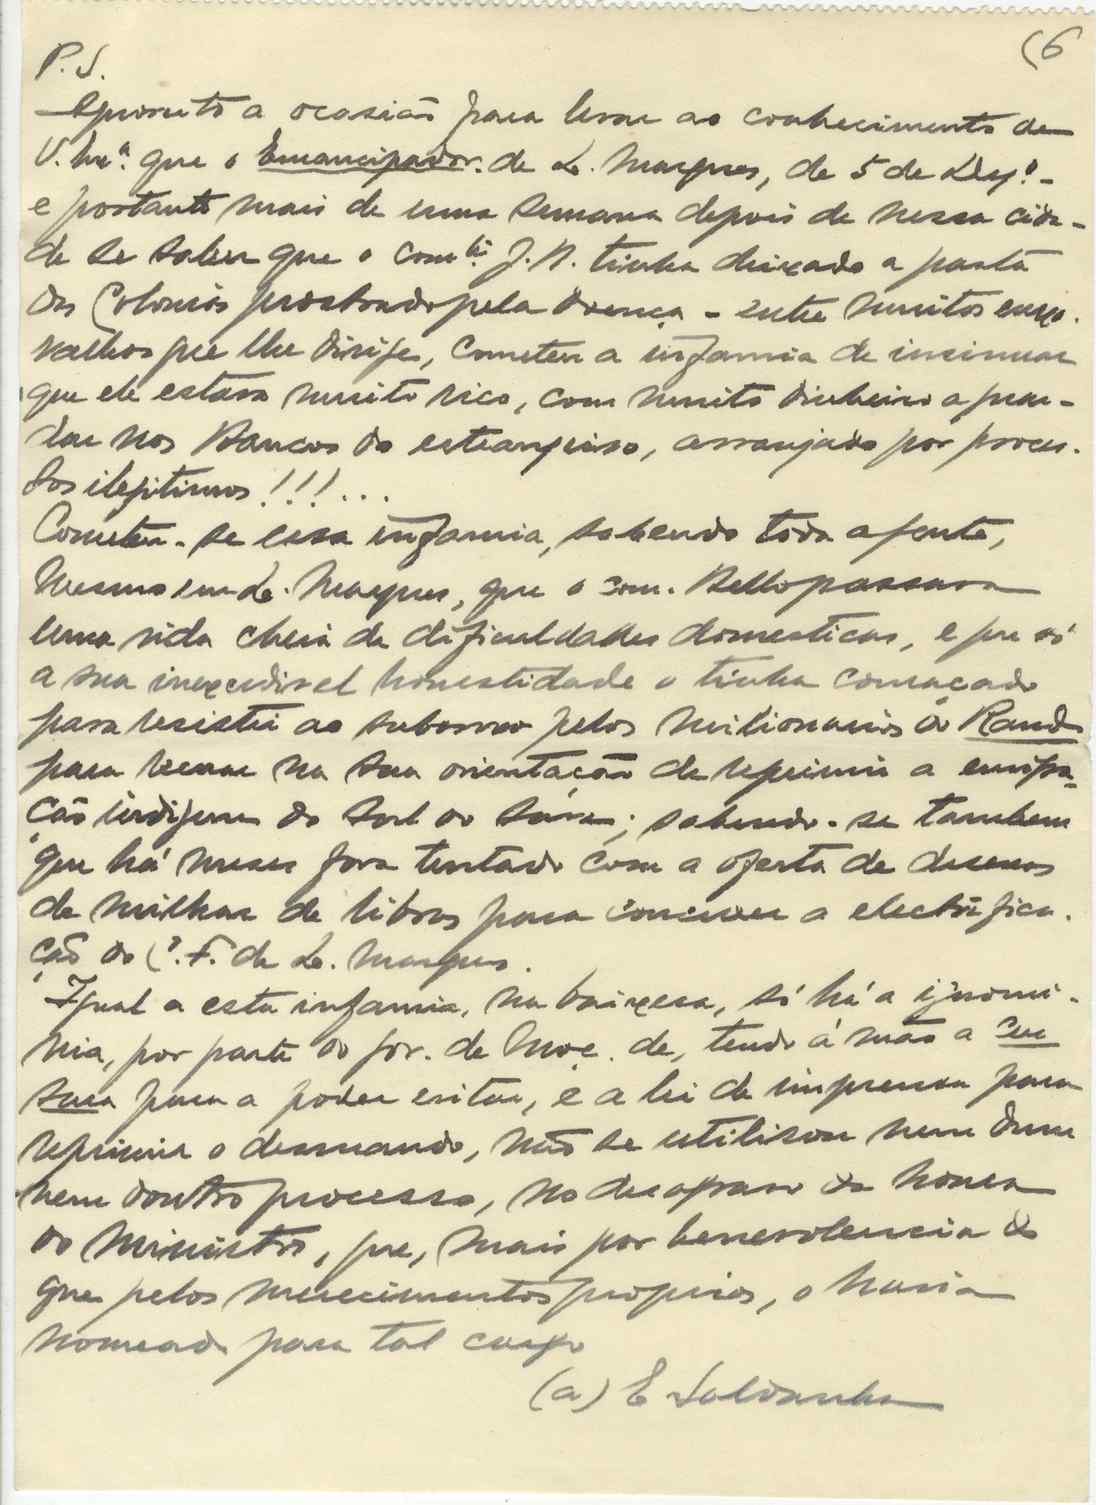 (6
P.S.
Aproveito a ocasião para levar ao conhecimento de
V. que o Emancipador. de L. Marques, de 5 de Dezº. -
e portanto mais de uma semana depois de nessa cida-
de se saber que o com.te J. B. tinha deixado a pasta
das Colonias prostrado pela doença - entre muitos enxo-
valhos que lhe dirige, cometeu a infamia de insinuar
que ele estava muito rico, com muito dinheiro a guar-
dar nos Bancos do estrangeiro, arranjado por proces-
sos ilegitimos!!!...
Cometeu-se essa infamia, sabendo toda a gente,
mesmo em L. Marques, que o com. Bello passava
uma vida cheia de dificuldades domesticas, e que só
a sua inexcedivel honestidade o tinha couraçado
para resistir ao suborno pelos milionarios do Rand
para recuar na sua orientação de reprimir a emigra-
ção indigena do Sul do Save; sabendo-se tambem
que há meses fora tentado com a oferta de desenas
de milhar de libras para conceder a electrifica-
ção do C.º F. de L. Marques.
Igual a esta infamia, na baixesa, só há a ignomi-
nia, por parte do gov. de Moç. de, tendo á mão a cen
sura para a poder evitar, e a lei de imprensa para
reprimir o desmando, não se utilisou nem dum
nem doutro processo, no desagravo da honra
do Ministro, que, mais por benevolencia do
que pelos merecimentos proprios, o havia
nomeado para tal cargo
(a) E Saldanha